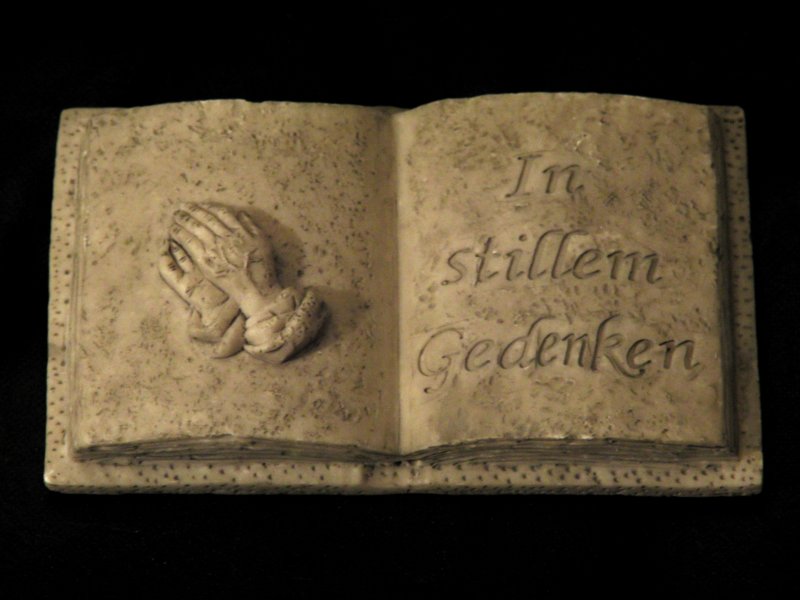 In
stillem
Gedenken